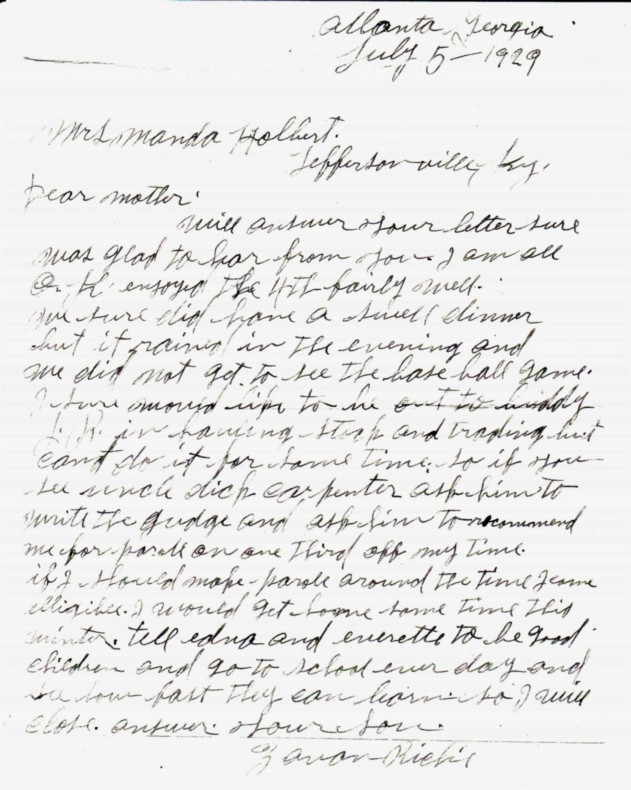 Atlanta, Georgia
July 5 - 1929
Mrs Manda Holbert.
Jeffersonville, Ky.
Dear mother.
will answer your letter sure
was glad to hear from you. I am all
O.K. enjoyed the 4th fairly well.
we sure did have a swell dinner
but it rained in the evening and
we did not get to see the base ball game.
I sure would like to be out to
in hauling stock and trading but
cant do it for some time. so if you
see uncle dick carpenter ask him to
write the gudge and ask him to recommend
me for parole on one third off my time.
if I should make parole around the time I come
elligibee. I would get home some time this
winter. tell edna and everette to be good
children and go to school ever day and
see how fast they can learn. so I will
close. answer. your son.